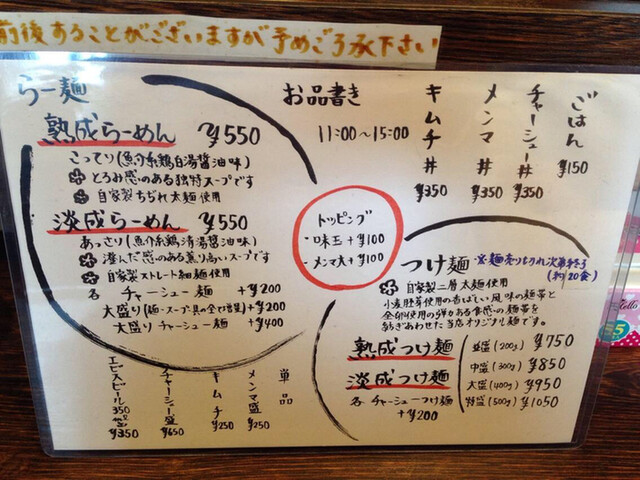 前後することがございますが予めご了承下さい
らー麺
熟成らーめん ¥550
こってり(魚介系鶏白湯醤油味)
とろみ感のある独特スープです
自家製ちぢれ太麺使用
淡成らーめん ¥550
あっさり(魚介系鶏清湯醤油味)
澄んだ感のある薫り高いスープです
自家製ストレート細麺使用
各 チャーシュー麺 +¥200
大盛り(麺・スープ・具の全て増量) +¥200
大盛り チャーシュー麺 +¥400
お品書き
11:00~15:00
キムチ丼 ¥350
メンマ丼 ¥350
チャーシュー丼 ¥350
ごはん ¥150
トッピング
・味玉+¥100
・メンマ大+¥100
つけ麺 ※麺売り切れ次第終了
(約20食)
自家製二層太麺使用
小麦胚芽使用の香ばしい風味の麺帯と
全卵使用の弾力ある食感の麺帯を
合わせた当店オリジナル麺です。
熟成つけ麺
淡成つけ麺
各 チャーシューつけ麺
+¥200
並盛(200g) ¥750
中盛(300g) ¥850
大盛(400g) ¥950
特盛(500g) ¥1050
単品
メンマ盛 ¥250
キムチ ¥250
チャーシュー盛 ¥650
ヱビスビール350 ¥350